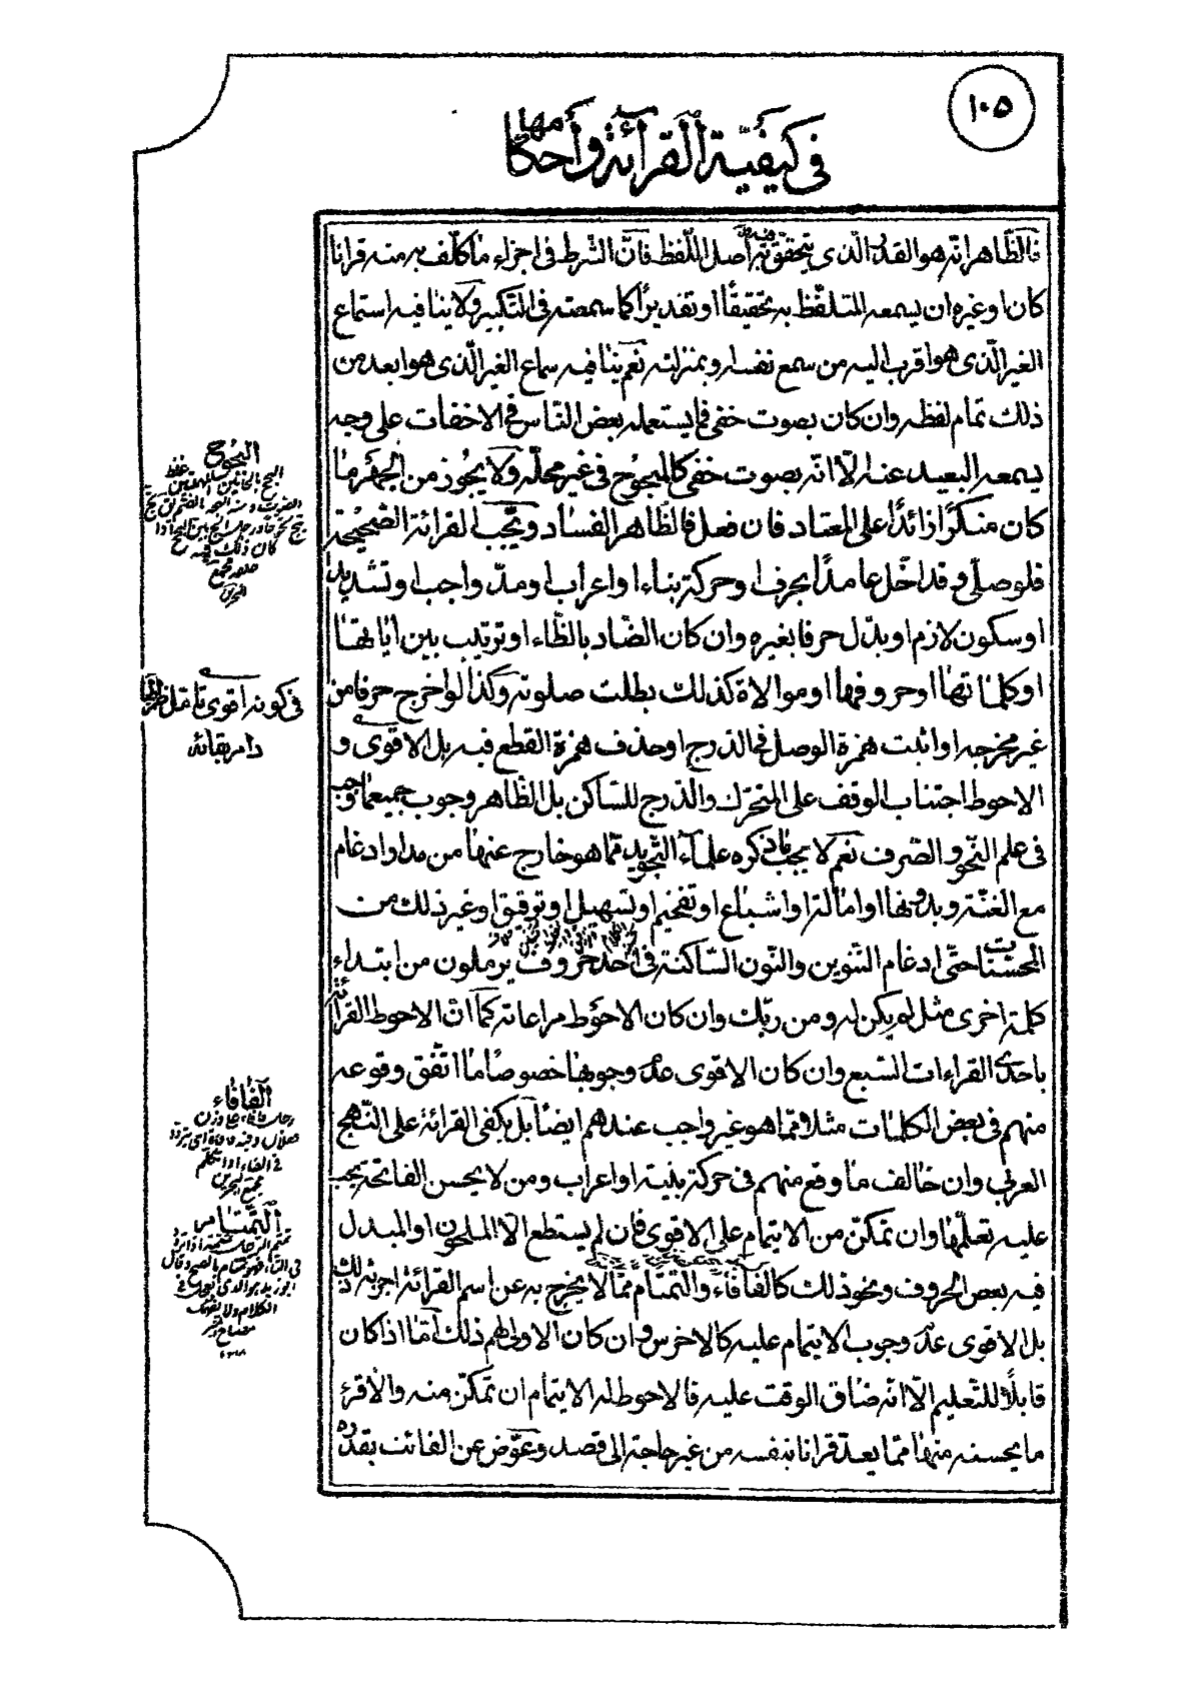 ١٠٥
في كيفية القرائة وأحكامها
فالظاهر انه هو القدر الذى يتحقق به أصل اللفظ فان الشرط فى اجزاء ما كلف به منه قرانا
كان او غيره ان يسمعه المتلفظ به تحقيقًا او تقديرًا كما سمعته فى التكبير ولا ينافيه استماع
الغير الذى هو اقرب اليه من سمع نفسه او بمنزلته نعم ينافيه سماع الغير الذى هو ابعد من
ذلك تمام لفظه وان كان بصوت خفى فما يستعمله بعض الناس فى الاخفات على وجه
يسمعه البعيد عنه الّا انه بصوت خفى كالمبحوح فى غير محله ولا يجوز من الجهر ما
كان منكرًا زائدًا على المعتاد فان فعل فالظاهر الفساد ويجب القرائة الصحيحة
فلو صلى وقد اخل عامدًا بحرف او حركة بناء او اعراب او مدّ واجب او تشديد
او سكون لازم او بدّل حرفا بغيره وان كان الضاد بالظاء او ترتيب بين اياتها
او كلماتها او حروفها او موالاة كذلك بطلت صلوته وكذا لو اخرج حرفا من
غير مخرجه او اثبت همزة الوصل فى الدرج او حذف همزة القطع فيه بل الاقوى و
الاحوط اجتناب الوقف على المتحرك والدرج للساكن بل الظاهر وجوب جميع ما وجب
فى علم النحو والصرف نعم لا يجب ما ذكره علماء التجويد مما هو خارج عنها من مد او ادغام
مع الغنة وبدونها او امالة او اشباع او تفخيم او تسهيل او ترقيق او غير ذلك من
المحسنات حتى ادغام التنوين والنون الساكنة فى احد حروف يرملون من ابتداء
كلمة اخرى مثل لم يكن له ومن ربّك وان كان الاحوط مراعاته كما ان الاحوط القرائة
باحدى القراءات السبع وان كان الاقوى عدم وجوبها خصوصًا ما اتفق وقوعه
منهم فى بعض الكلمات مثلا فمّا هو غير واجب عندهم ايضا بل يكفى القرائة على النهج
العربى وان خالف ما وقع منهم فى حركة بنية او اعراب ومن لا يحسن الفاتحة يجب
عليه تعلّمها وان تمكن من الايتمام على الاقوى فان لم يستطع الّا الملحون او المبدل
فيه بعض الحروف ونحو ذلك كالفأفاء والتمتام ممّا لا يخرج به عن اسم القرائة اجزئه ذلك
بل الاقوى عدم وجوب الايتمام عليه كالاخرس وان كان الاولى لهم ذلك أمّا اذا كان
قابلًا للتعليم الّا انه ضاق الوقت عليه فالاحوط له الايتمام ان تمكن منه والّا قرء
ما يحسنه منها مما يعدّ قرانا بنفسه من غير حاجة الى قصد وعوّض عن الفائت بقدره
البحوح
فى كونه اقوى تامل
دام بقائه
الفأفاء
فى الفاء اذا تكلم
مجمع البحرين
التمتام